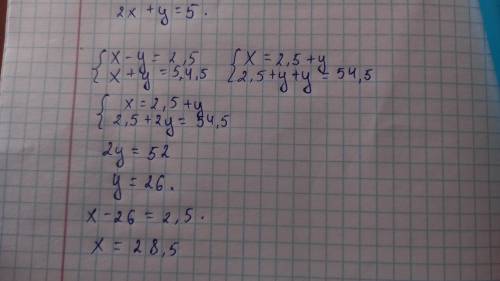 2x + y = 5.
{ x - y = 2,5 { x = 2,5 + y
{ x + y = 54,5 { 2,5 + y + y = 54,5
{ x = 2,5 + y
{ 2,5 + 2y = 54,5
2y = 52
y = 26.
x - 26 = 2,5.
x = 28,5